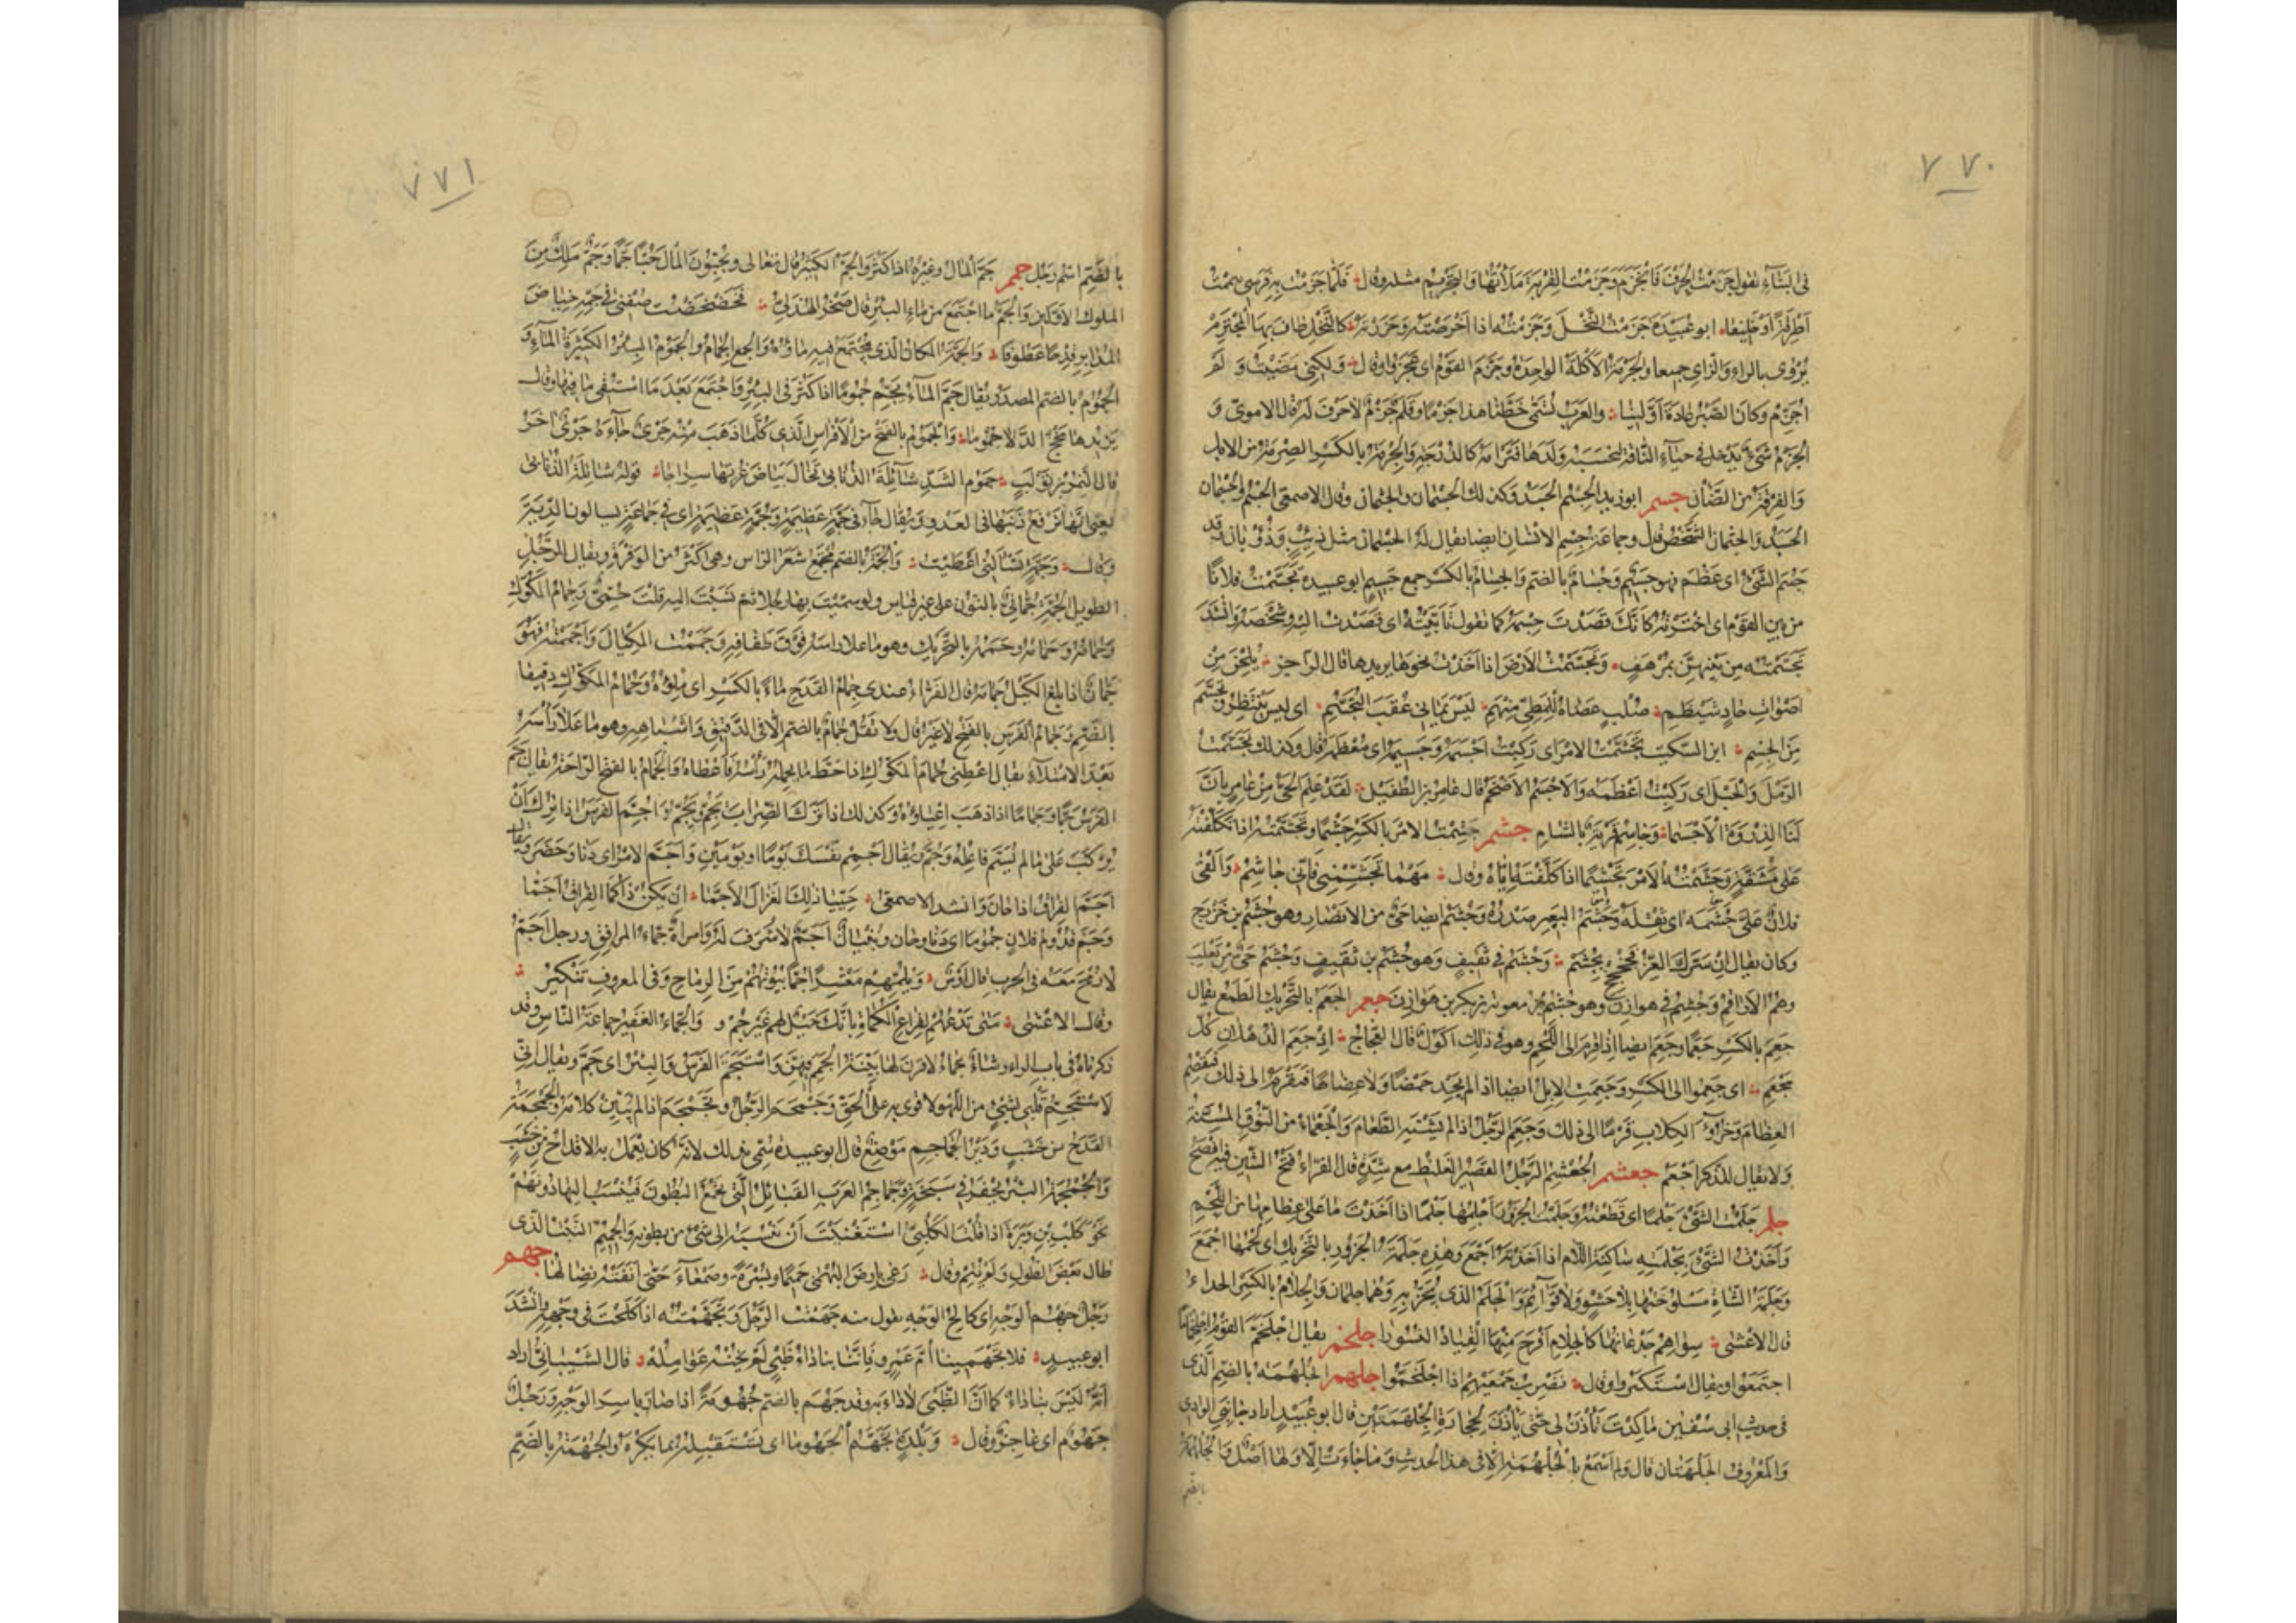 ٧٧٠
فى الشتاء تقول جزمت الحرف فانجزم وجزمت القربة ملأتها والتجزيم مثله وقال فلما جزمت به قربتى تيممت
اطرقة او خليفا ابو عبيدة جزمت النخل وجزمته اذا خرصته وحزرته كالنخل طاف بها المجتزم
يروى بالراء والزاى جميعا والجزمة الاكلة الواحدة وجزم القوم اى عجزوا وقال ولكنى مضيت ولم
اجزم وكان الصبر عادة اولينا والعرب تسمى خطنا هذا جزما وقلم جزم لا حرف له قال الاموى و
الجزم شىء يدخل فى حياء الناقة لتحسبه ولدها فترأمه كالدرجة والجزمة بالكسر الصرمة من الابل
والفرقة من الضأن جسم ابو زيد الجسم الجسد وكذلك الجسمان والجثمان وقال الاصمعى الجسم والجسمان
الجسد والجثمان الشخص قال وجماعة جسم الانسان ايضا يقال له الجسمان مثل ذئب وذؤبان وقد
جسم الشىء اى عظم فهو جسيم وجسام بالضم والجسام بالكسر جمع جسيم ابو عبيدة تجسمت فلانا
من بين القوم اى اخترته كأنك قصدت جسمه كما تقول تأييته اى تصدت اليه وشخصه وانشد
تجسمته من بينهن بمرهف وتجسمت الارض اذا اخذت نحوها يريدها قال الراجز يلحن من
اصوات حاد شيظم صلب عصاه للمطى منهم ليس يمانى عقب التجسم اى ليس ينتظر وتجسم
من الجسم ابن السكيت تجسمت الامر اى ركبت اجسمه وجسيمه اى معظمه قال وكذلك تجسمت
الرمل والجبل اى ركبت اعظمه والاجسم الاضخم قال عامر بن الطفيل لقد علم الحى من عامر بان
لنا الذروة الاجسما وجاسم قرية بالشام جشم جشمت الامر بالكسر جشما وتجشمته اذا تكلفته
على مشقة وجشمته الامر تجشيما اذا كلفته اياه وقال مهما تجشمنى فانى جاشم والقى
فلان على جشمه اى ثقله وجشم البعير صدره وجشم ايضا حى من الانصار وهو جشم بن خزرج
وكان يقال ان سرك العز فجخجخ بجشم وجشم فى ثقيف وهو جشم بن ثقيف وجشم حى من تغلب
وهم الاراقم وجشم فى هوازن وهو جشم بن معوية بن بكر بن هوازن جعم الجعم بالتحريك الطمع يقال
جعم بالكسر جعما وجعم ايضا اذا قرم الى اللحم وهو فى ذلك اكول قال العجاج اذ جعم الذهلان كل
مجعم اى جعموا الى الكسر وجعمت الابل ايضا اذا لم يجد حمضا ولا عضاها فتقرم الى ذلك فتقضم
العظام وخرؤ الكلاب قرما الى ذلك وجعم الرجل اذا لم يشته الطعام والجعماء من النوق المسنة
ولا يقال للذكر اجعم جعشم الجعشم الرجل القصير الغليظ مع شدة قال الفراء فتح الشين فيه افصح
جلم جلمت الشىء جلما اى قطعته وجلمت الجزور اجلمها جلما اذا اخذت ما على عظامها من اللحم
واخذت الشىء بجلمته ساكنة اللام اذا اخذته اجمع وهذه جلمة الجزور بالتحريك اى لحمها اجمع
وجلمة الشاة مسلوختها بلا حشو ولا قوائم والجلم الذى يجز به وهما جلمان والجلام بالكسر الجداء
قال الاعشى سواهم جذعانها كالجلام اقرح منها القياد النسورا جلخم يقال اجلخم القوم اجلخماما
اجتمعوا ويقال استكبروا وقال نضرب جمعيهم اذا اجلخموا جلهم الجلهمة بالضم الذى
فى حديث ابى سفين ما كدت تأذن لى حتى يأذن لحجارة الجلهمتين قال ابو عبيد اراد جانبى الوادى
والمعروف الجلهتان قال ولم اسمع بالجلهمة الا فى هذا الحديث وما جاءت الا ولها اصل والجلهمة
بالضم
٧٧١
بالضم اسم رجل جمم جم المال وغيره اذا كثر والجم الكثير قال تعالى ويحبون المال حبا جما وجم ملك من
الملوك الاولين والجم ما اجتمع من ماء البئر قال صخر الهذلى فخضخضت صفنى فى جمه خياض
المدابر قدحا عطوفا والجمة المكان الذى يجتمع فيه ماؤه والجمع الجمام والجموم البئر الكثيرة الماء و
الجموم بالضم المصدر ويقال جم الماء يجم جموما اذا كثر فى البئر واجتمع بعد ما استقى ما فيها وقال
يزيدها مخج الدلا جموما والجموم بالفتح من الافراس الذى كلما ذهب منه جرى جاءه جرى اخر
قال النمر بن تولب جموم الشد شائلة الذنابى تخال بياض غرتها سراجا قوله شائلة الذنابى
يعنى انها ترفع ذنبها فى العدو ويقال جاء فى جمة عظيمة وجمة عظيمة اى فى جماعة يسالون الدية
وقال وجمة تسألنى اعطيت والجمة بالضم مجتمع شعر الراس وهى اكثر من الوفرة ويقال للرجل
الطويل الجمة جمانى بالنون على غير قياس ولو سميت بها رجلا ثم نسبت اليه قلت جمى وجمام المكوك
وجمامه وجمامه وجممه بالتحريك وهو ما علا راسه فوق طفافه وجممت المكيال واجممته فهو
جمان اذا بلغ الكيل جمامه قال الفراء عندى جمام القدح ماء بالكسر اى ملؤه وجمام المكوك دقيقا
بالضم وجمام الفرس بالفتح لا غير قال ولا تقل جمام بالضم الا فى الدقيق واشباهه وهو ما علا راسه
بعد الامتلاء يقال اعطنى جمام المكوك اذا حط ما يحمله رأسه فاعطاه والجمام بالفتح الراحة يقال جم
الفرس جما وجماما اذا ذهب اعياؤه وكذلك اذا ترك الضراب يجم ويجم واجم الفرس اذا ترك ان
يركب على ما لم يسم فاعله وجم ويقال اجمم نفسك يوما او يومين واجم الامر اى دنا وحضر ويقال
اجم الفراق اذا حان وانشد الاصمعى حييا ذلك الغزال الاجما ان يكن ذاكما الفراق اجما
وجم قدوم فلان جموما اى دنا وحان وبنيان اجم لا شرف له وامرأة جماء المرافق ورجل اجم
لا رمح معه فى الحرب قال اوس ويلمهم معشرا جما بيوتهم من الرماح وفى المعروف تنكير
وقال الاعشى متى تدعهم لقراع الكماة ياتك خيل لهم غير جم و والجماء الغفير جماعة الناس وقد
ذكرناه فى باب الراء وشاة جماء لا قرن لها بينة الجمم وهن واستجم الفرس والبئر اى جم ويقال انى
لاستجم قلبى بشىء من اللهو لاقوى به على الحق وجمجم الرجل وتجمجم اذا لم يبين كلامه والجمجمة
القدح من خشب ودير الجماجم موضع قال ابو عبيدة سمى بذلك لانه كان يعمل به الاقداح من خشب
والجمجمة البئر يحفر فى سبخة وجماجم العرب القبائل التى تجمع البطون فينسب اليها دونهم
نحو كلب بن وبرة اذا قلت الكلبى استغنيت ان تنسبه الى شىء من بطونه والجميم النبت الذى
طال بعض الطول ولم يتم وقال رعى بارض البهمى جميما وبسرة وصمعاء حتى انفته نصالها جهم
رجل جهم الوجه اى كالح الوجه تقول منه جهمت الرجل وتجهمته اذا كلحت فى وجهه وانشد
ابو عبيد فلا تجهمينا ام عمرو فاننا بنا داء ظبى لم تخنه عوامله قال الشيبانى اراد
انه ليس بنا داء كما ان الظبى لا داء به وقد جهم بالضم جهومة اذا صار باسر الوجه ورجل
جهوم اى عاجز وقال وبلدة تجهم الجهوما اى تستقبله بما يكره والجهمة بالضم